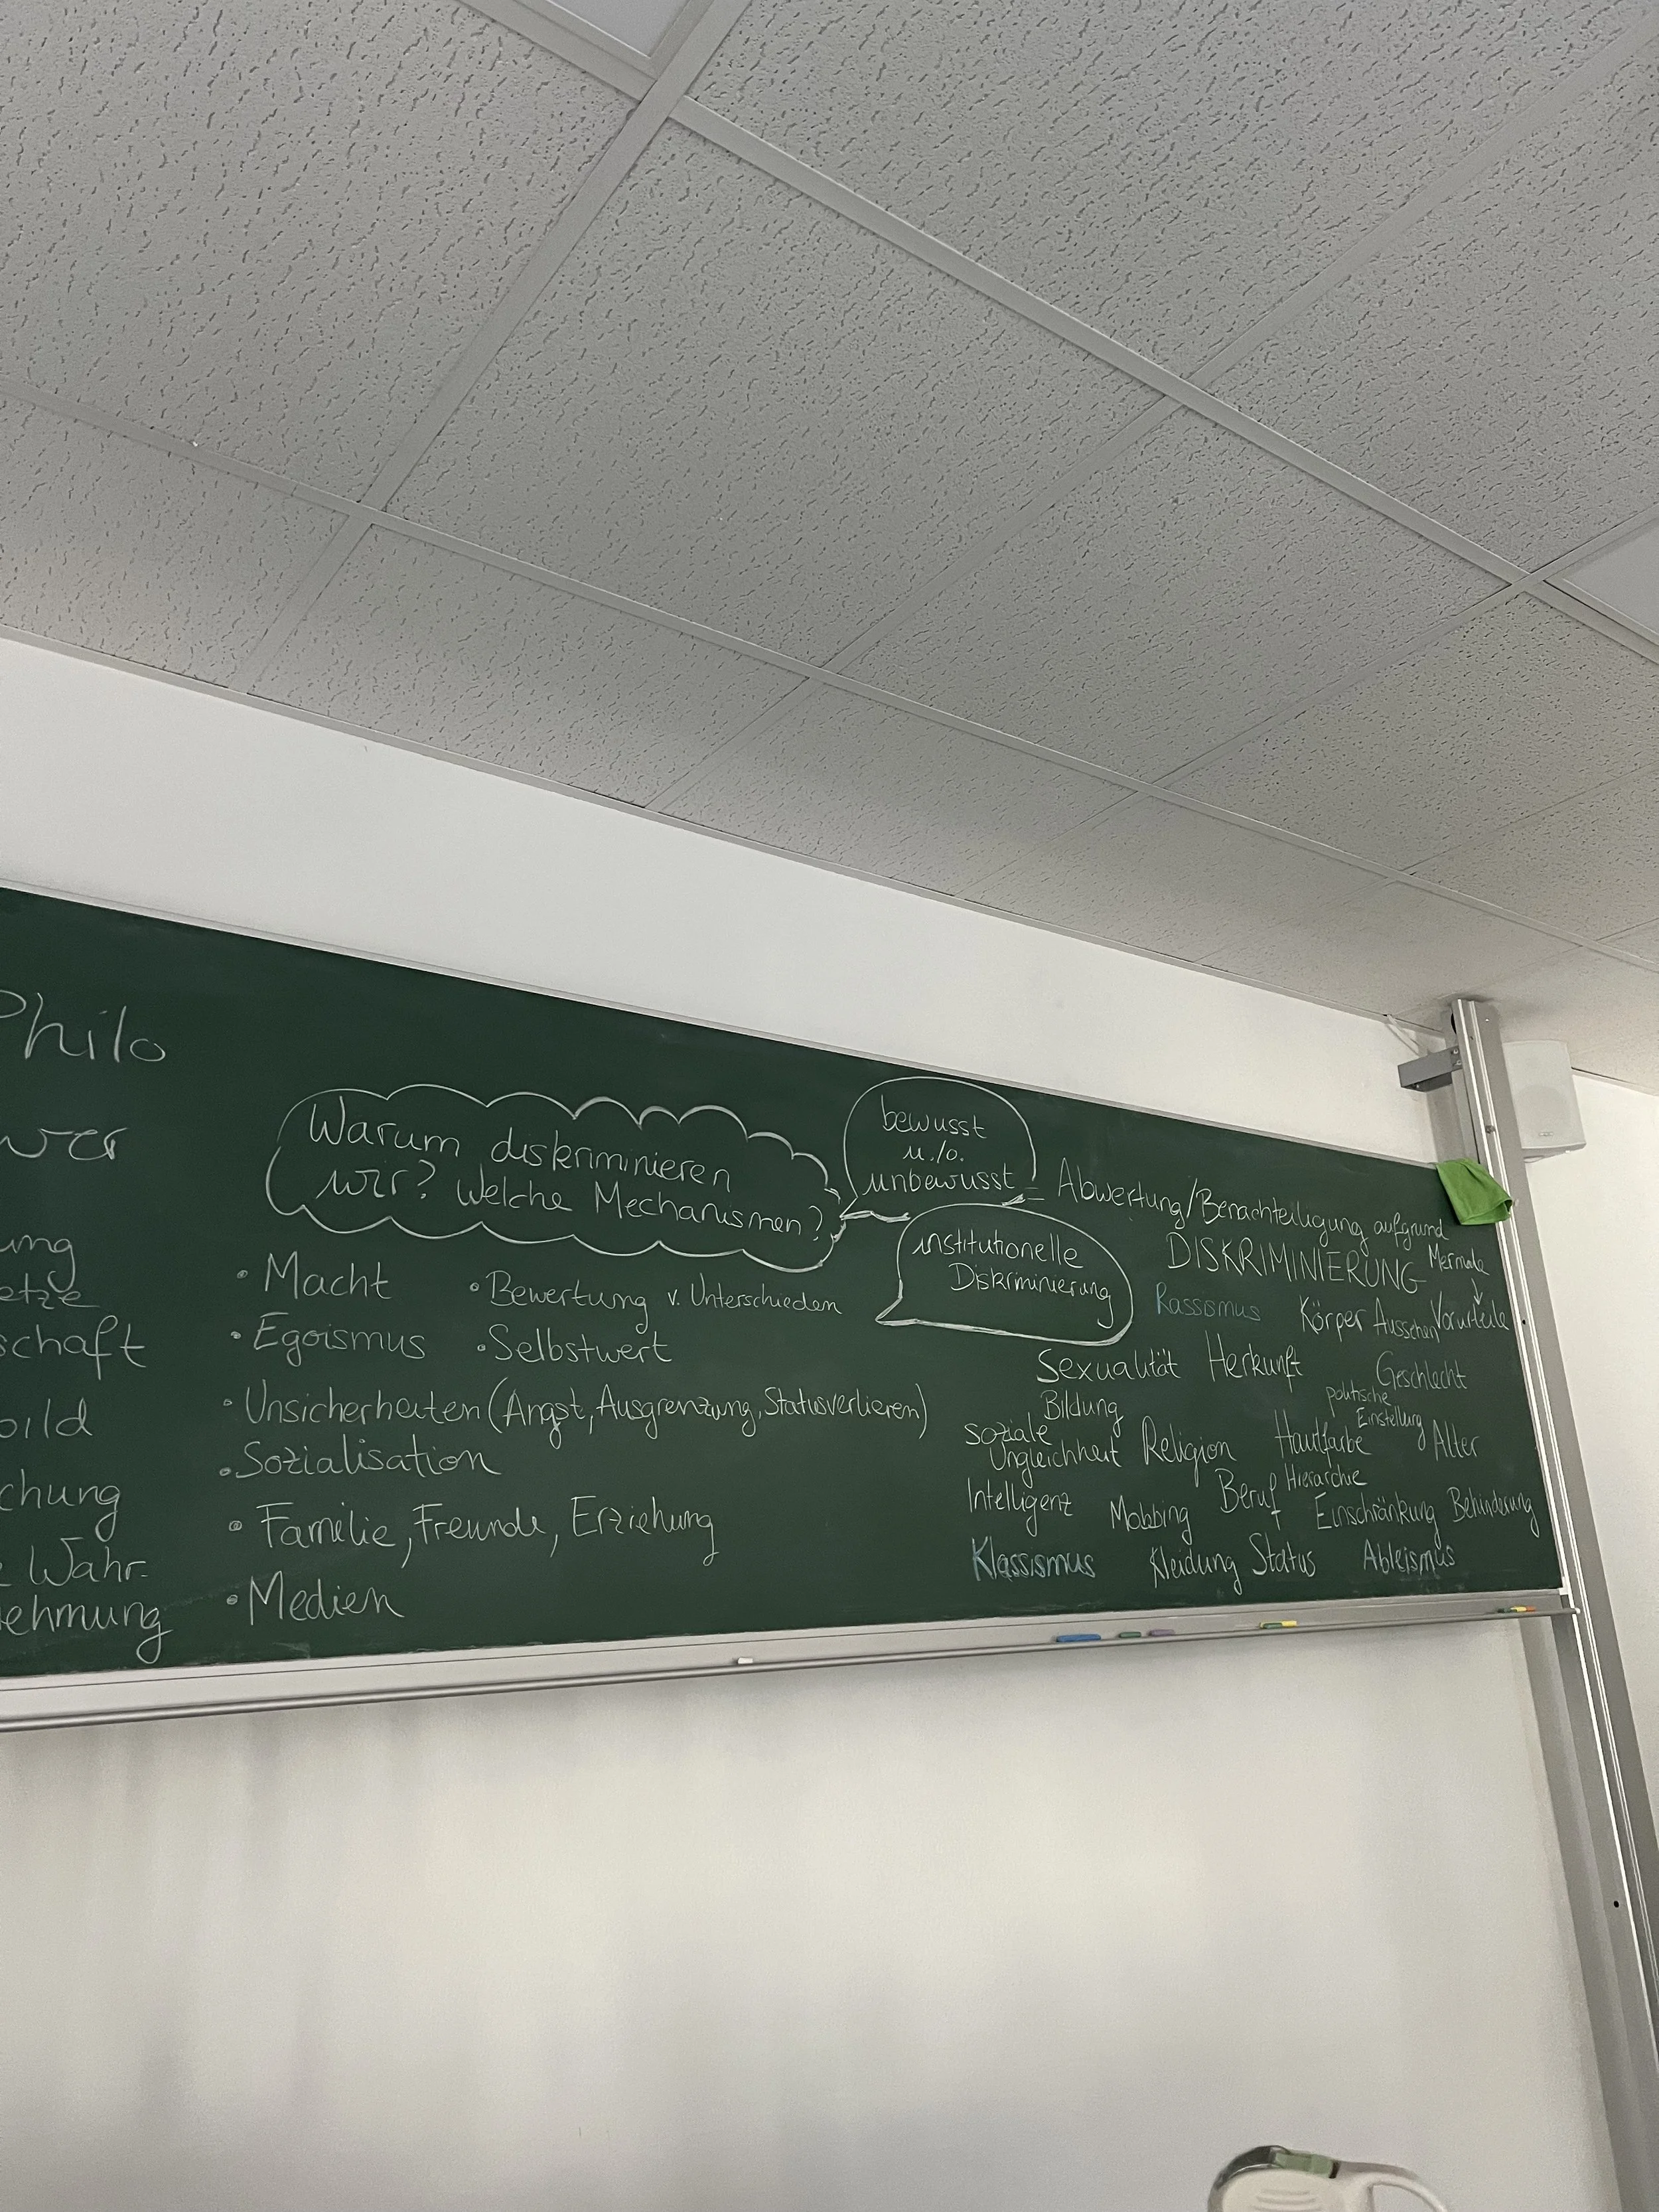 Philo
wer
ung
etze
schaft
bild
chung
Wahr-
ehmung
Warum diskriminieren
wir? Welche Mechanismen?
• Macht
• Egoismus
• Bewertung v. Unterschieden
• Selbstwert
• Unsicherheiten (Angst, Ausgrenzung, Statusverlieren)
• Sozialisation
• Familie, Freunde, Erziehung
• Medien
bewusst
u./o.
unbewusst
institutionelle
Diskriminierung
= Abwertung/Benachteiligung aufgrund
Mermale
DISKRIMINIERUNG
Rassismus
Körper Aussehen Vorurteile
Sexualität Herkunft Geschlecht
Bildung
politische
Einstellung
soziale
Ungleichheit Religion Hautfarbe Alter
Intelligenz Mobbing Beruf Hierarchie
Einschränkung Behinderung
Klassismus Kleidung Status Ableismus